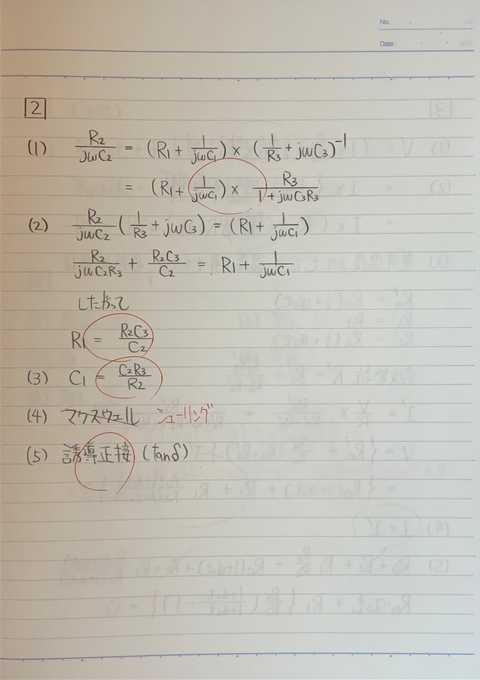 No.
Date
2
(1) R2/jωC2 = (R1 + 1/jωC1) × (1/R3 + jωC3)^-1
= (R1 + 1/jωC1) × R3/(1 + jωC3R3)
(2) R2/jωC2 (1/R3 + jωC3) = (R1 + 1/jωC1)
R2/jωC2R3 + R2C3/C2 = R1 + 1/jωC1
したがって
R1 = R2C3/C2
(3) C1 = C2R3/R2
(4) マクスウェル シェーリング
(5) 誘導正接 (tanδ)